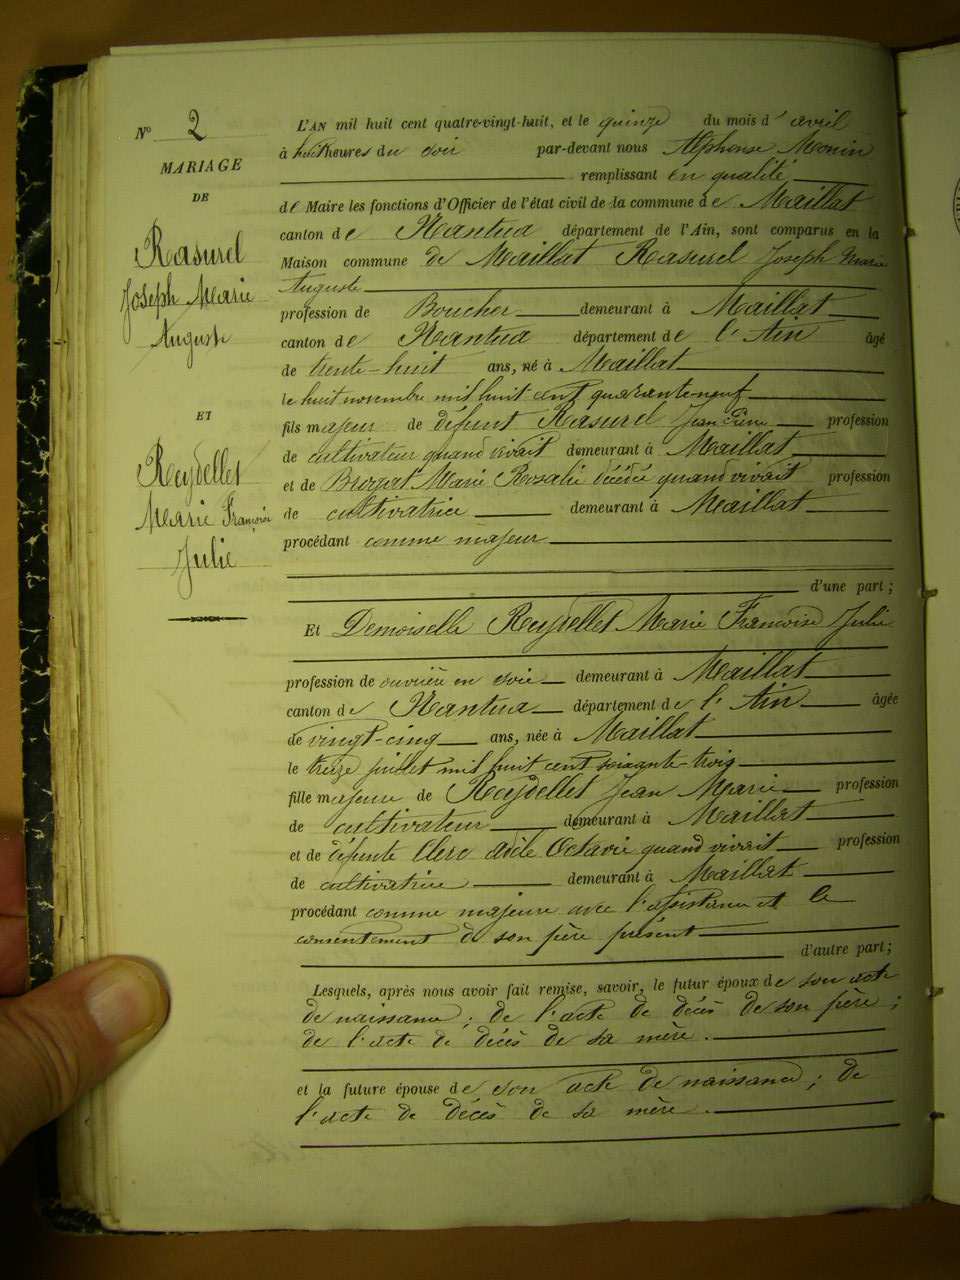 N° 2
MARIAGE
DE
Rasurel
Joseph Marie
Auguste
ET
Reydellet
Marie Françoise
Julie
L'AN mil huit cent quatre-vingt-huit, et le quinze du mois d'avril
à huit heures du soir par-devant nous Alphonse Monin
remplissant en qualité
de Maire les fonctions d'Officier de l'état civil de la commune de Maillat
canton de Nantua département de l'Ain, sont comparus en la
Maison commune de Maillat Rasurel Joseph Marie
Auguste
profession de Boucher demeurant à Maillat
canton de Nantua département de l'Ain âgé
de trente-huit ans, né à Maillat
le huit novembre mil huit cent quarante-neuf
fils majeur de défunt Rasurel Jean Pierre profession
de cultivateur quand vivait demeurant à Maillat
et de Marie Rosalie décédée quand vivait profession
de cultivatrice demeurant à Maillat
procédant comme majeur
d'une part;
Et Demoiselle Reydellet Marie Francoise Julie
profession de ouvrière en soie demeurant à Maillat
canton de Nantua département de l'Ain âgée
de vingt-cinq ans, née à Maillat
le treize juillet mil huit cent soixante-trois
fille majeure de Reydellet Jean Marie profession
de cultivateur demeurant à Maillat
et de défunte Clerc adèle Octavie quand vivait profession
de cultivatrice demeurant à Maillat
procédant comme majeure avec l'assistance et le
consentement de son père présent
d'autre part;
Lesquels, après nous avoir fait remise, savoir, le futur époux de son acte
de naissance; de l'acte de décès de son père;
de l'acte de décès de sa mère.
et la future épouse de son acte de naissance; de
l'acte de décès de sa mère.